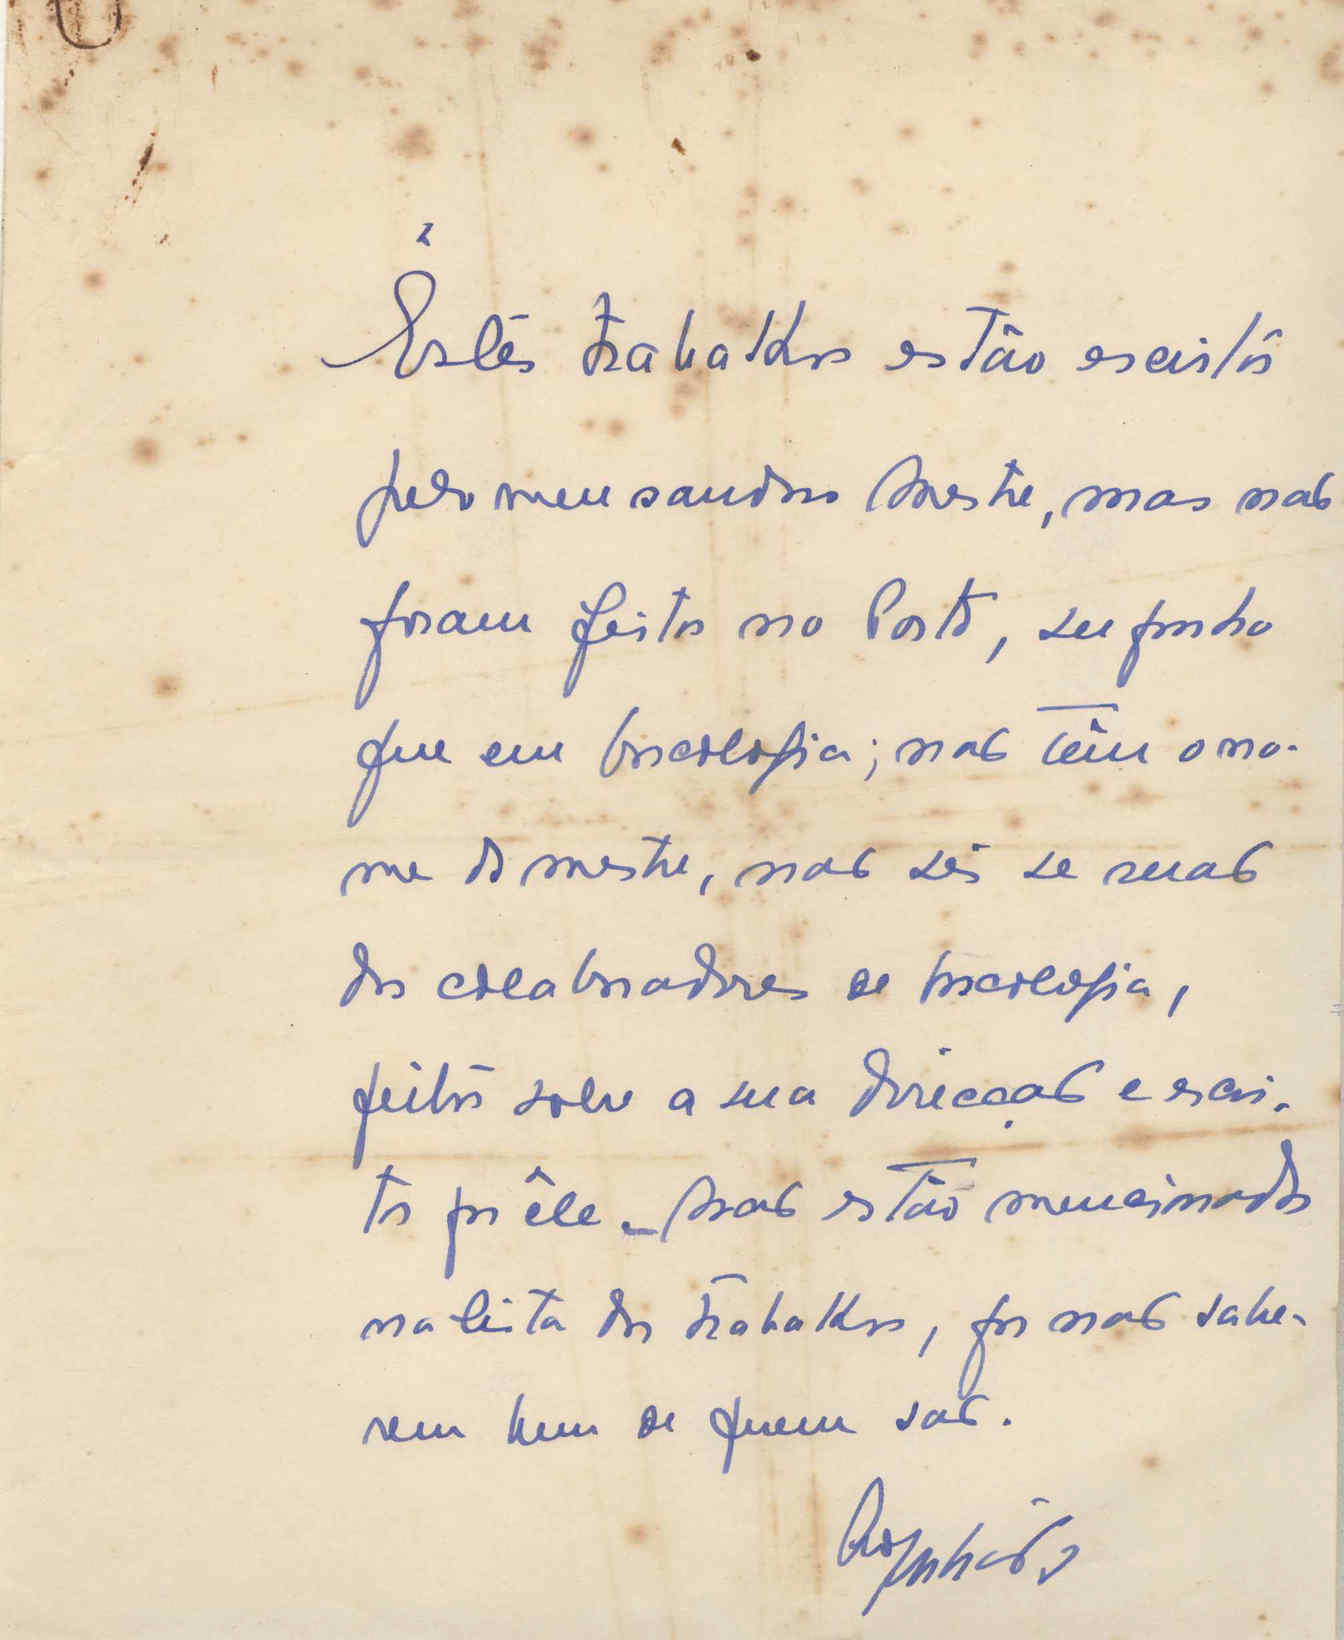 Êstes trabalhos estão escritos
pelo meu saudoso Mestre, mas não
foram feitos no Porto, suponho
que em Psicologia; não têm o no-
me do mestre, não sei se serão
dos colaboradores de psicologia,
feitos sobre a sua direcção e escri-
tos por êle _ Não estão mencionados
na lista dos trabalhos, por não sabe-
rem bem de quem são.